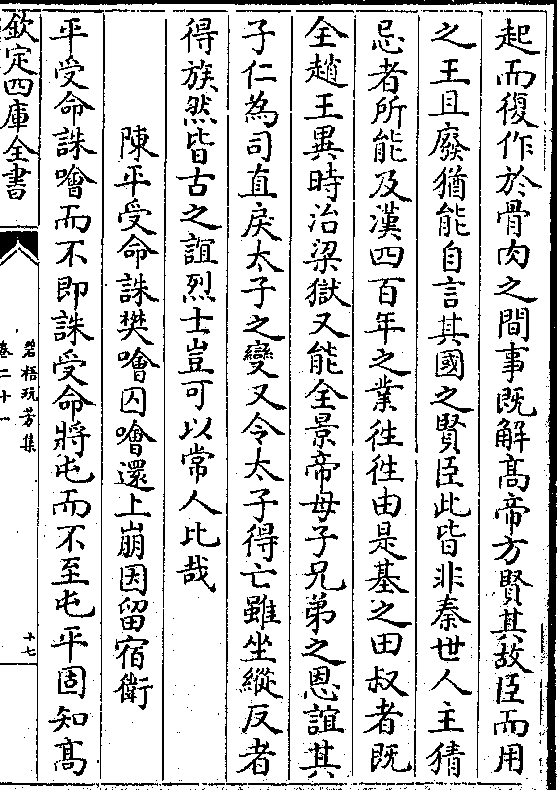 起而復作於骨肉之間事既解髙帝方賢其故臣而用
之王且廢猶能自言其國之賢臣此皆非秦世人主猜
忌者所能及漢四百年之業徃徃由是基之田叔者既
全趙王異時治梁獄又能全景帝母子兄弟之恩誼其
子仁為司直戾太子之變又令太子得亡雖坐縱反者
得族然皆古之誼烈士豈可以常人比哉
陳平受命誅樊噲囚噲還上崩因留宿衛
平受命誅噲而不即誅受命將屯而不至屯平固知髙
欽定四庫全書
碧梧玩芳集
卷二十一
十七